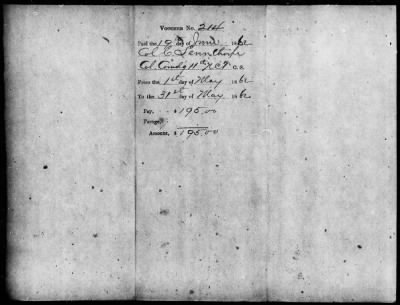 Voucher No. 214
Paid the 19th day of June 1862
Col. C. Leventhorpe
Col. Comdg 11th N.C.T. C.S.
From the 1st day of May 1862
To the 31st day of May 1862
Pay, $195.00
Forage,
Amount, $195.00